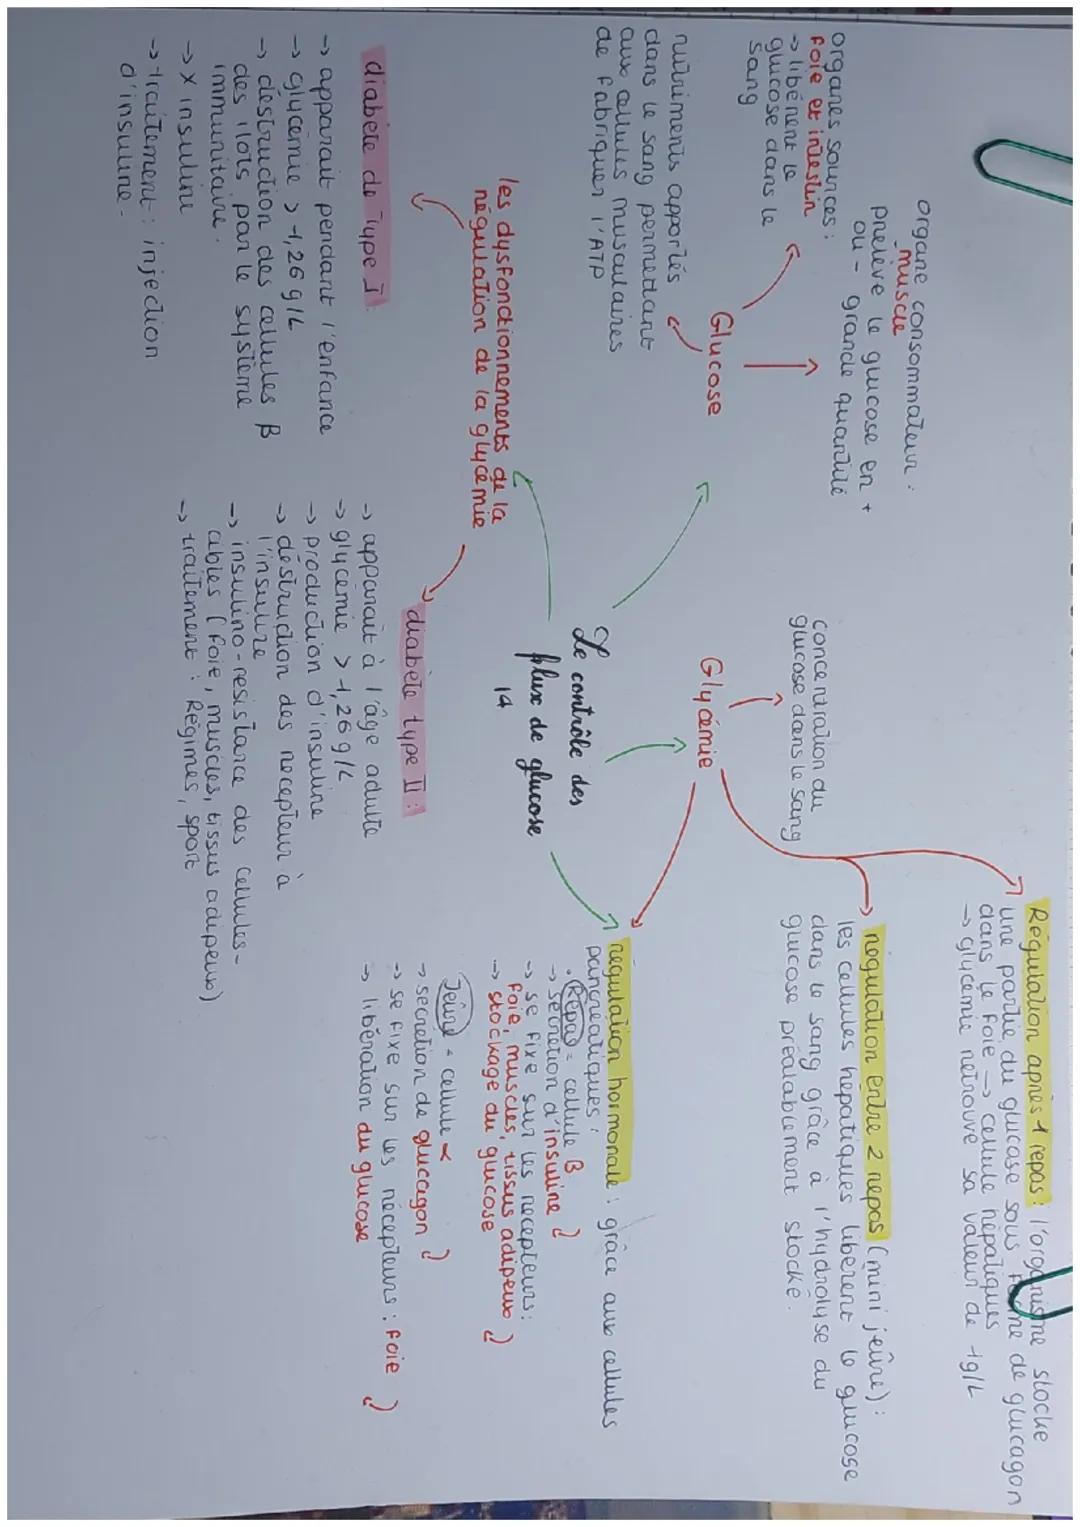 organe consommateur :
muscle
prélève le glucose en +
ou - grande quantité
organes sources :
foie et intestin
→ libèrent le
glucose dans le
sang
Glucose
nutriments apportés
dans le sang permettant
aux cellules musculaires
de fabriquer l'ATP
Régulation après 1 repas : l'organisme stocke
une partie du glucose sous forme de glucagon
dans le foie → cellule hépatiques
→ glycémie retrouve sa valeur de 1g/L
régulation entre 2 repas (mini jeûne) :
les cellules hépatiques libèrent le glucose
dans le sang grâce à l'hydrolyse du
glucose préalablement stocké.
concentration du
glucose dans le sang
Glycémie
Le contrôle des
flux de glucose
14
régulation hormonale : grâce aux cellules
pancréatiques :
• Repas = cellule B
→ sécrétion d'insuline
→ se fixe sur les recepteurs :
foie, muscles, tissus adipeux
→ stockage du glucose
Jeûne = cellule α
→ sécretion de glucagon
→ se fixe sur les récepteurs : foie
→ libération du glucose
les dysfonctionnements de la
régulation de la glycémie
diabète de type I :
→ apparait pendant l'enfance
→ glycémie > 1,26 g/L
→ destruction des cellules β
des ilots par le système
immunitaire.
→ X insuline
→ traitement : injection
d'insuline.
diabète type II :
→ apparait à l'âge adulte
→ glycemie > 1,26 g/L
→ production d'insuline
→ déstruction des recepteur à
l'insuline
→ insulino-resistance des cellules-
cibles (foie, muscles, tissus adipeux)
→ traitement : Régimes, sport